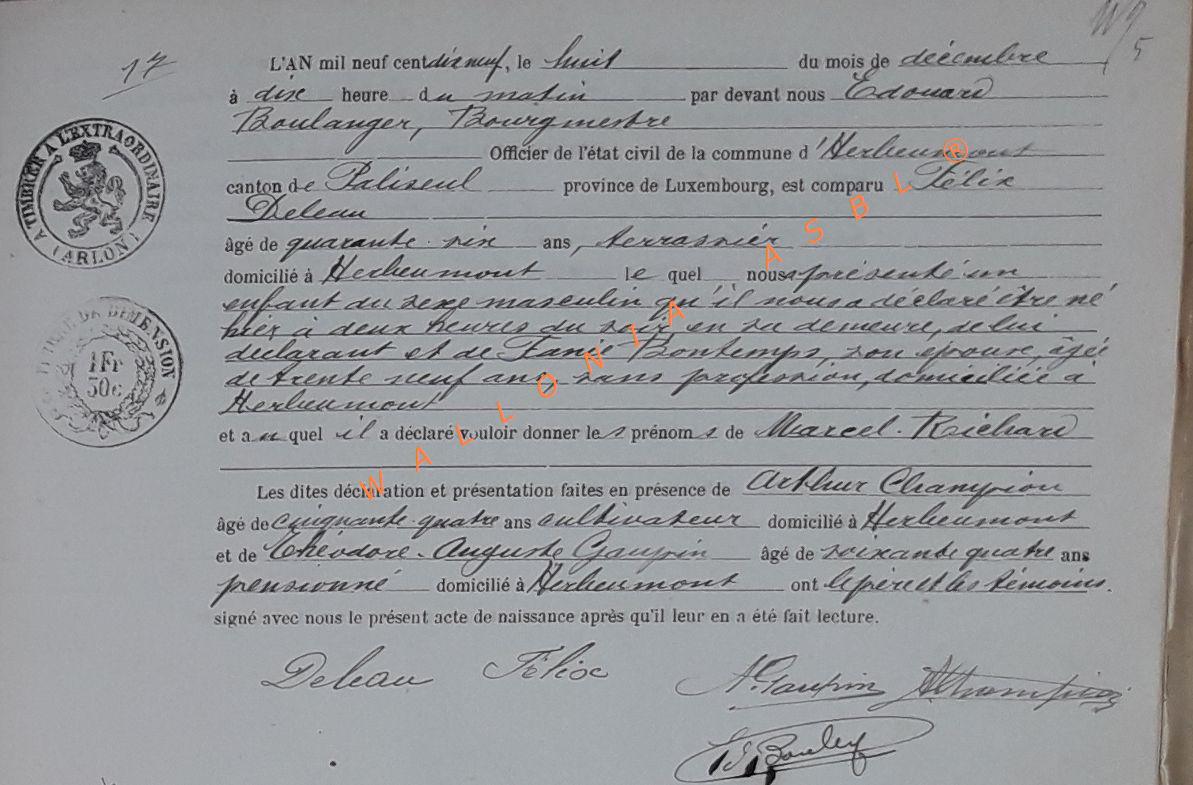 17
L'AN mil neuf cent dix neuf, le huit du mois de décembre
à dix heure du matin par devant nous Edouard
Boulanger, Bourgmestre
Officier de l'état civil de la commune d'Herbeumont
canton de Paliseul province de Luxembourg, est comparu Félix
Deleau
âgé de quarante-six ans, terrassier
domicilié à Herbeumont le quel nous a présenté un
enfant du sexe masculin qu'il nous a déclaré être né
hier, à deux heures du soir en sa demeure, de lui
déclarant et de Fanie Bontemps, son épouse, âgée
de trente neuf ans, sans profession, domiciliée à
Herbeumont
et au quel il a déclaré vouloir donner les prénoms de Marcel-Richard
Les dites déclaration et présentation faites en présence de Arthur Champion
âgé de cinquante-quatre ans cultivateur domicilié à Herbeumont
et de Théodore-Auguste Gaupin âgé de soixante quatre ans
pensionné domicilié à Herbeumont ont le père et les témoins
signé avec nous le présent acte de naissance après qu'il leur en a été fait lecture.
Deleau Félix
A. Gaupin
A TIMBRER A L'EXTRAORDINAIRE
(ARLON)
DE DIMENSION
1Fr
50c
WALLONIA ASBL ®